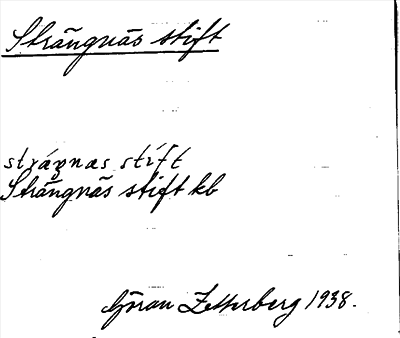 Strängnäs stift
stráŋnas stíft
Strängnäs stift kb
Göran Zetterberg 1938.